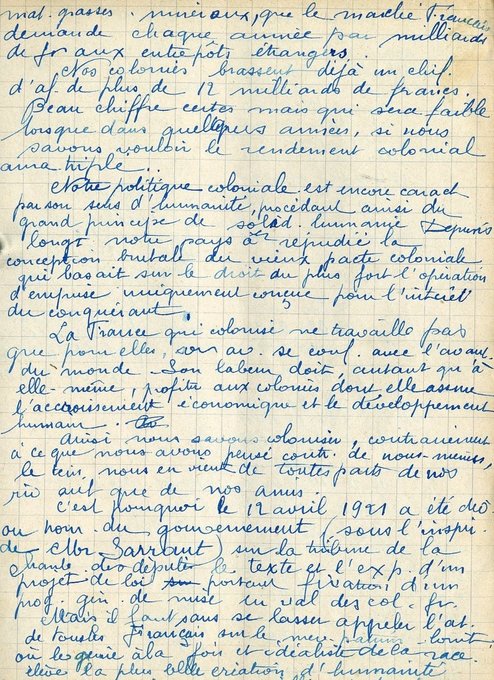 mat. grasses. minéraux, que le marché Français
demande chaque année par milliards
de fr aux entrepôts étrangers.
Nos colonies brassent déjà un chif.
d'af. de plus de 12 milliards de francs.
Beau chiffre certes mais qui sera faible
lorsque dans quelques années, si nous
savons vouloir le rendement colonial
aura triplé..
Notre politique coloniale est encore caract
par son sens d'humanité, procédant ainsi du
grand principe de solid. humaine Depuis
longt notre pays a répudié la
conception brutale du vieux pacte coloniale
qui basait sur le droit du plus fort l'opération
d'emprise uniquement conçue pour l'intérêt
du conquérant.
La France qui colonise ne travaille pas
que pour elles, son av. se conf. avec l'avant.
du monde. Son labeur doit, autant qu'à
elle-même, profiter aux colonies dont elle assume
l'accroissement économique et le développement
humain.
Ainsi nous savons coloniser, contrairement
à ce que nous avons pensé contr. de nous-mêmes,
le tém. nous en vient de toutes parts de nos
riv aut que de nos amis.
C'est pourquoi le 12 avril 1921 a été dép
au nom du gouvernement (sous l'inspi.
de Mr. Sarraut) sur la tribune de la
chambr. des députés le texte et l'exp. d'un
projet de loi portant fixation d'un
prog. gén. de mise en val des col. fr.
Mais il faut sans se lasser appeler l'at.
de tous les Français sur le
où le génie à la fois et idéaliste de la race
élève la plus belle création d'humanité